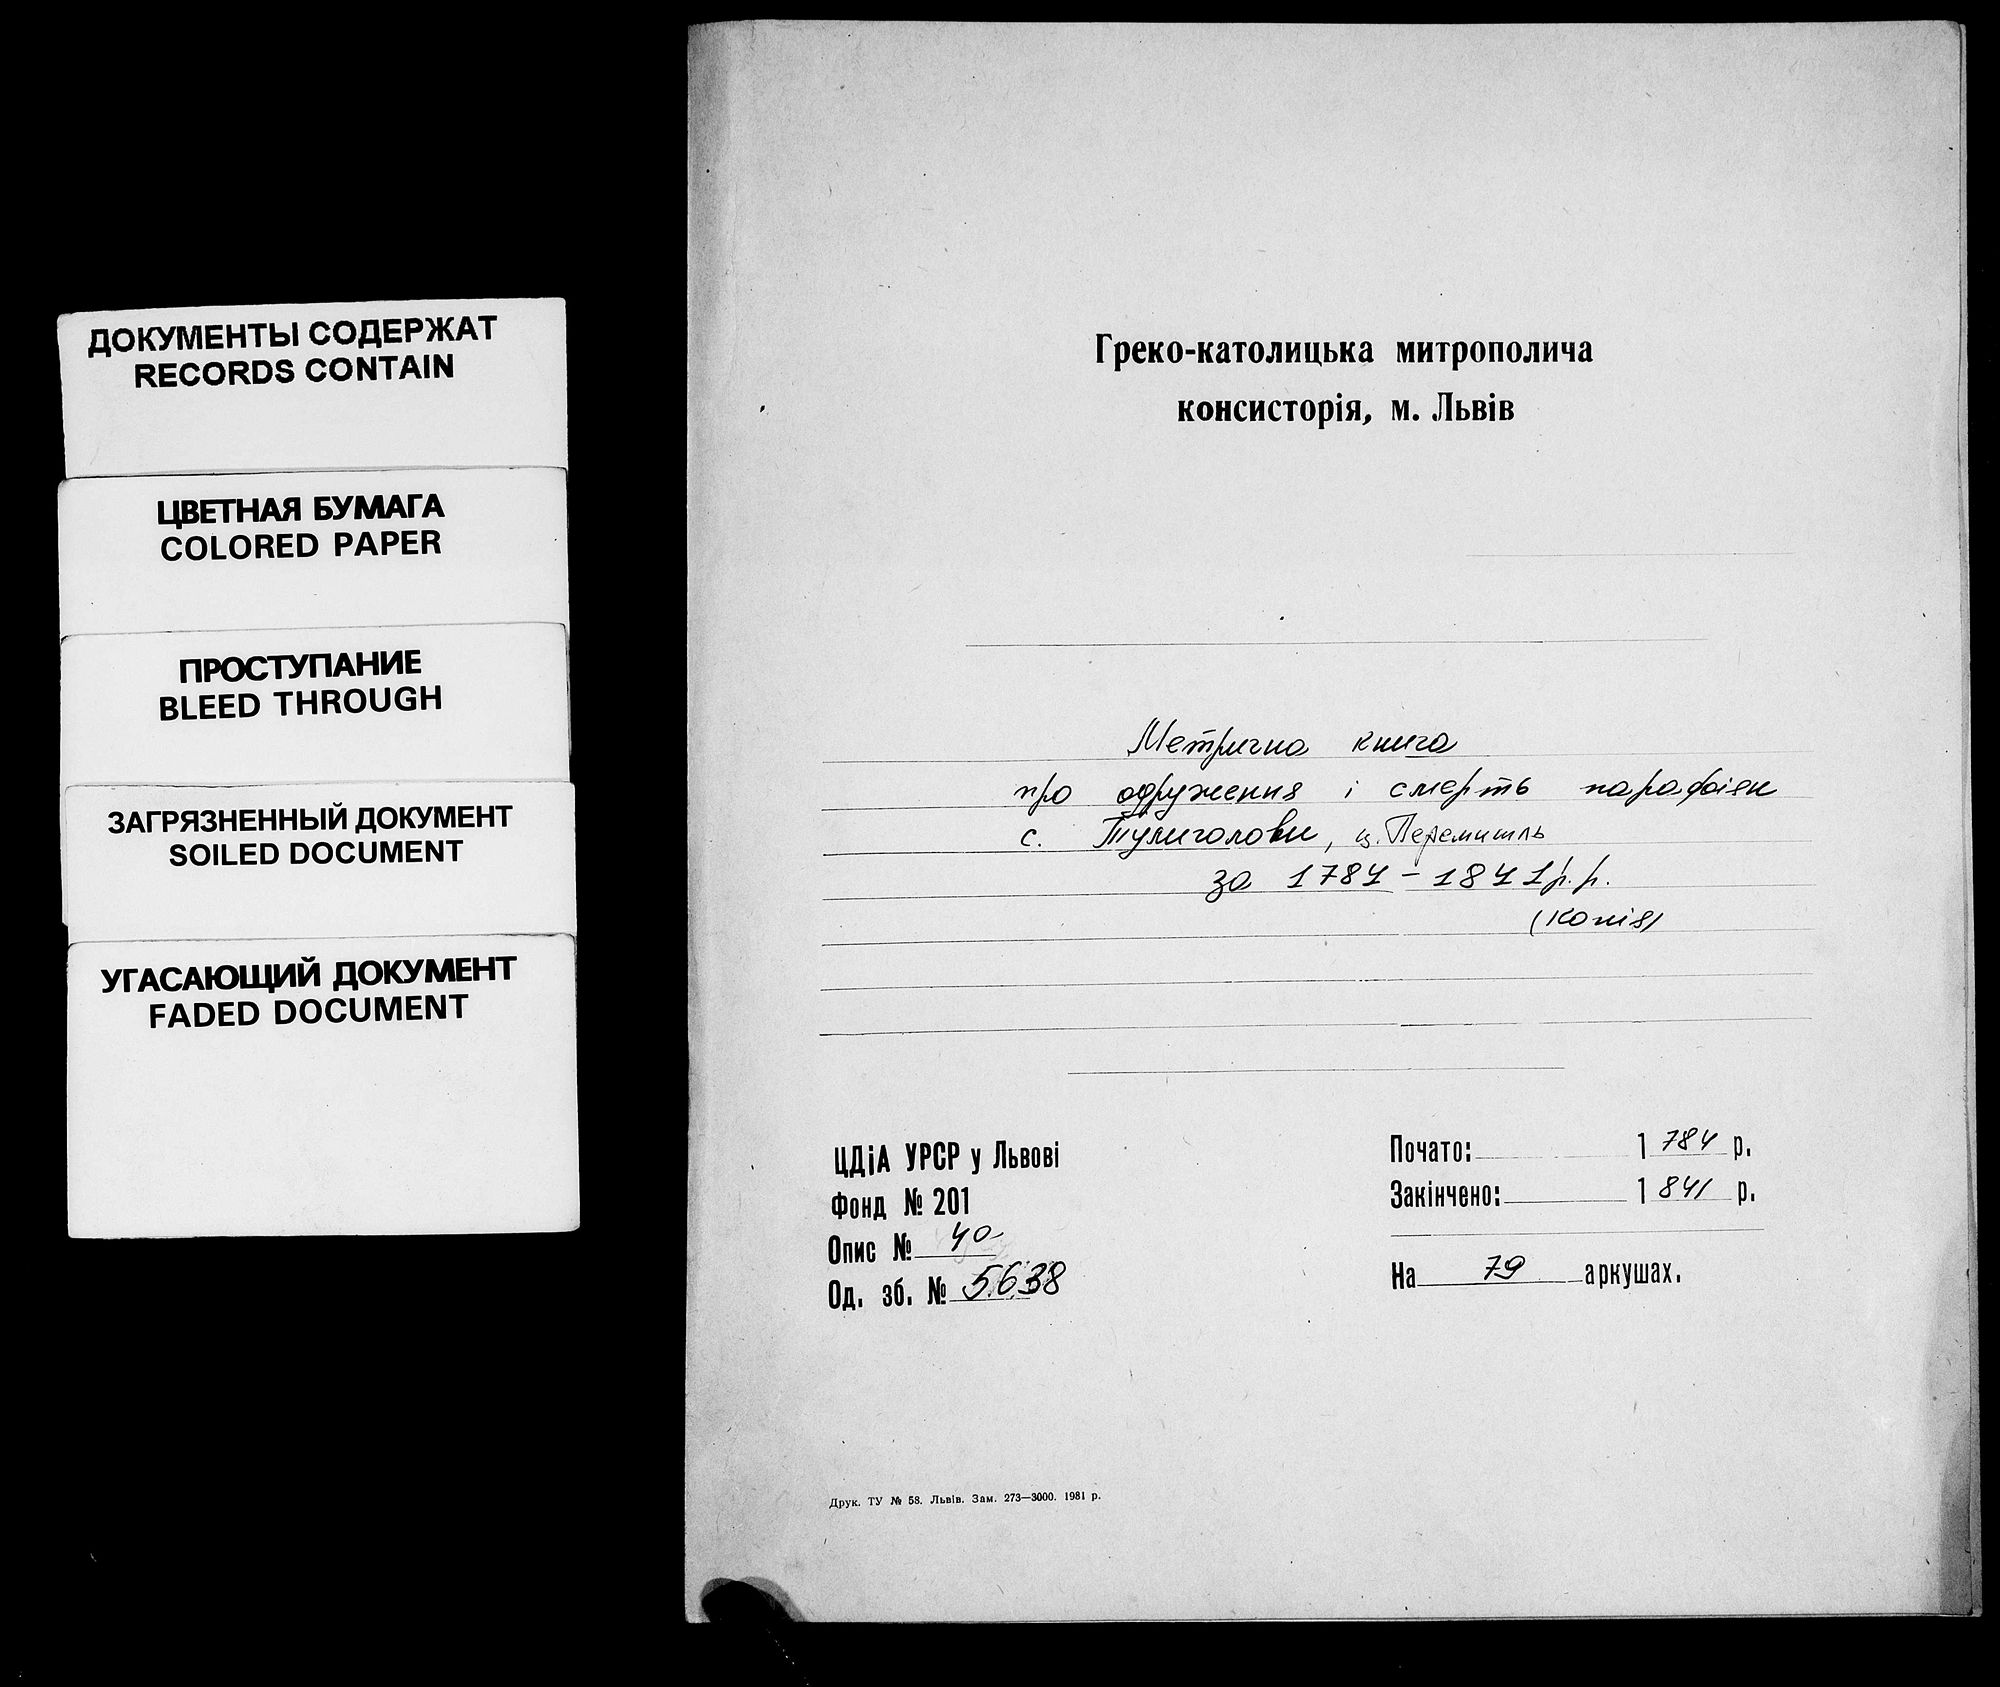 ДОКУМЕНТЫ СОДЕРЖАТ
RECORDS CONTAIN
ЦВЕТНАЯ БУМАГА
COLORED PAPER
ПРОСТУПАНИЕ
BLEED THROUGH
ЗАГРЯЗНЕННЫЙ ДОКУМЕНТ
SOILED DOCUMENT
УГАСАЮЩИЙ ДОКУМЕНТ
FADED DOCUMENT
Греко-католицька митрополича
консисторія, м. Львів
Метрична книга
про одруження і смерть парафіян
с. Тулиголови, ц. Перемишль
за 1784 - 1841 р.р.
(копія)
ЦДіА УРСР у Львові
Фонд № 201
Опис № 40
Од. зб. № 5638
Почато: 1784 р.
Закінчено: 1841 р.
На 79 аркушах.
Друк. ТУ № 58. Львів. Зам. 273—3000. 1981 р.